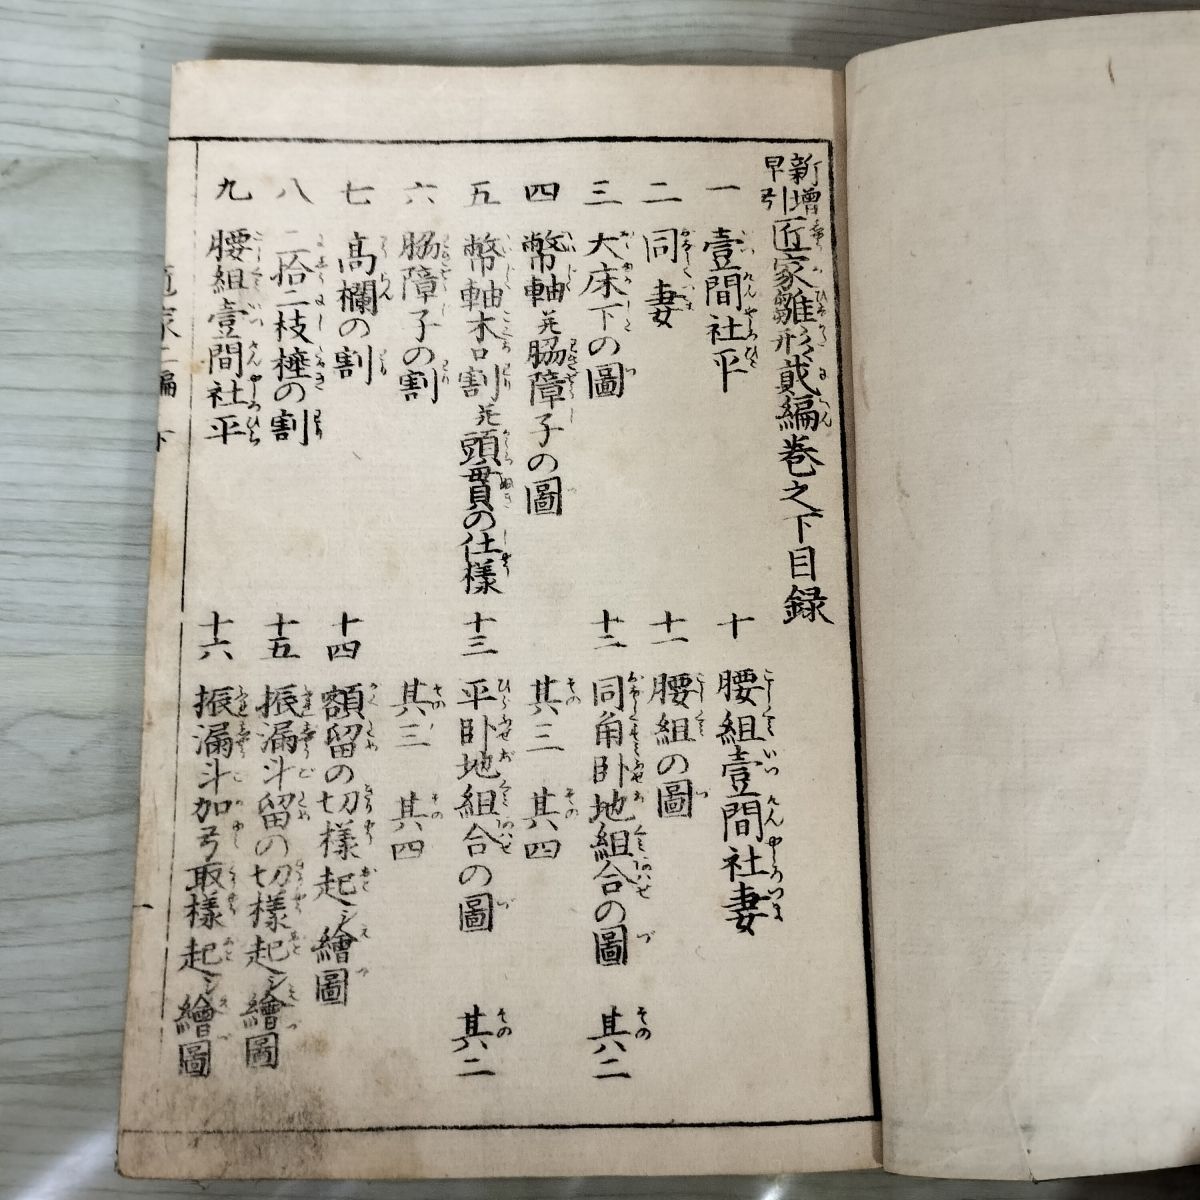 新増早引匠家雛形貮編巻之下目録
一 壹間社平
二 同妻
三 大床下の圖
四 幣軸并脇障子の圖
五 幣軸木口割并頭貫の仕様
六 脇障子の割
七 高欄の割
八 二拾二枝棰の割
九 腰組壹間社平
十 腰組壹間社妻
十一 腰組の圖
十二 同角卧地組合の圖 其二
其三 其四
十三 平卧地組合の圖 其二
其三 其四
十四 額留の切様起シ繪圖
十五 振漏斗留の切様起シ繪圖
十六 振漏斗加弓取様起シ繪圖
匠家二編 下 一